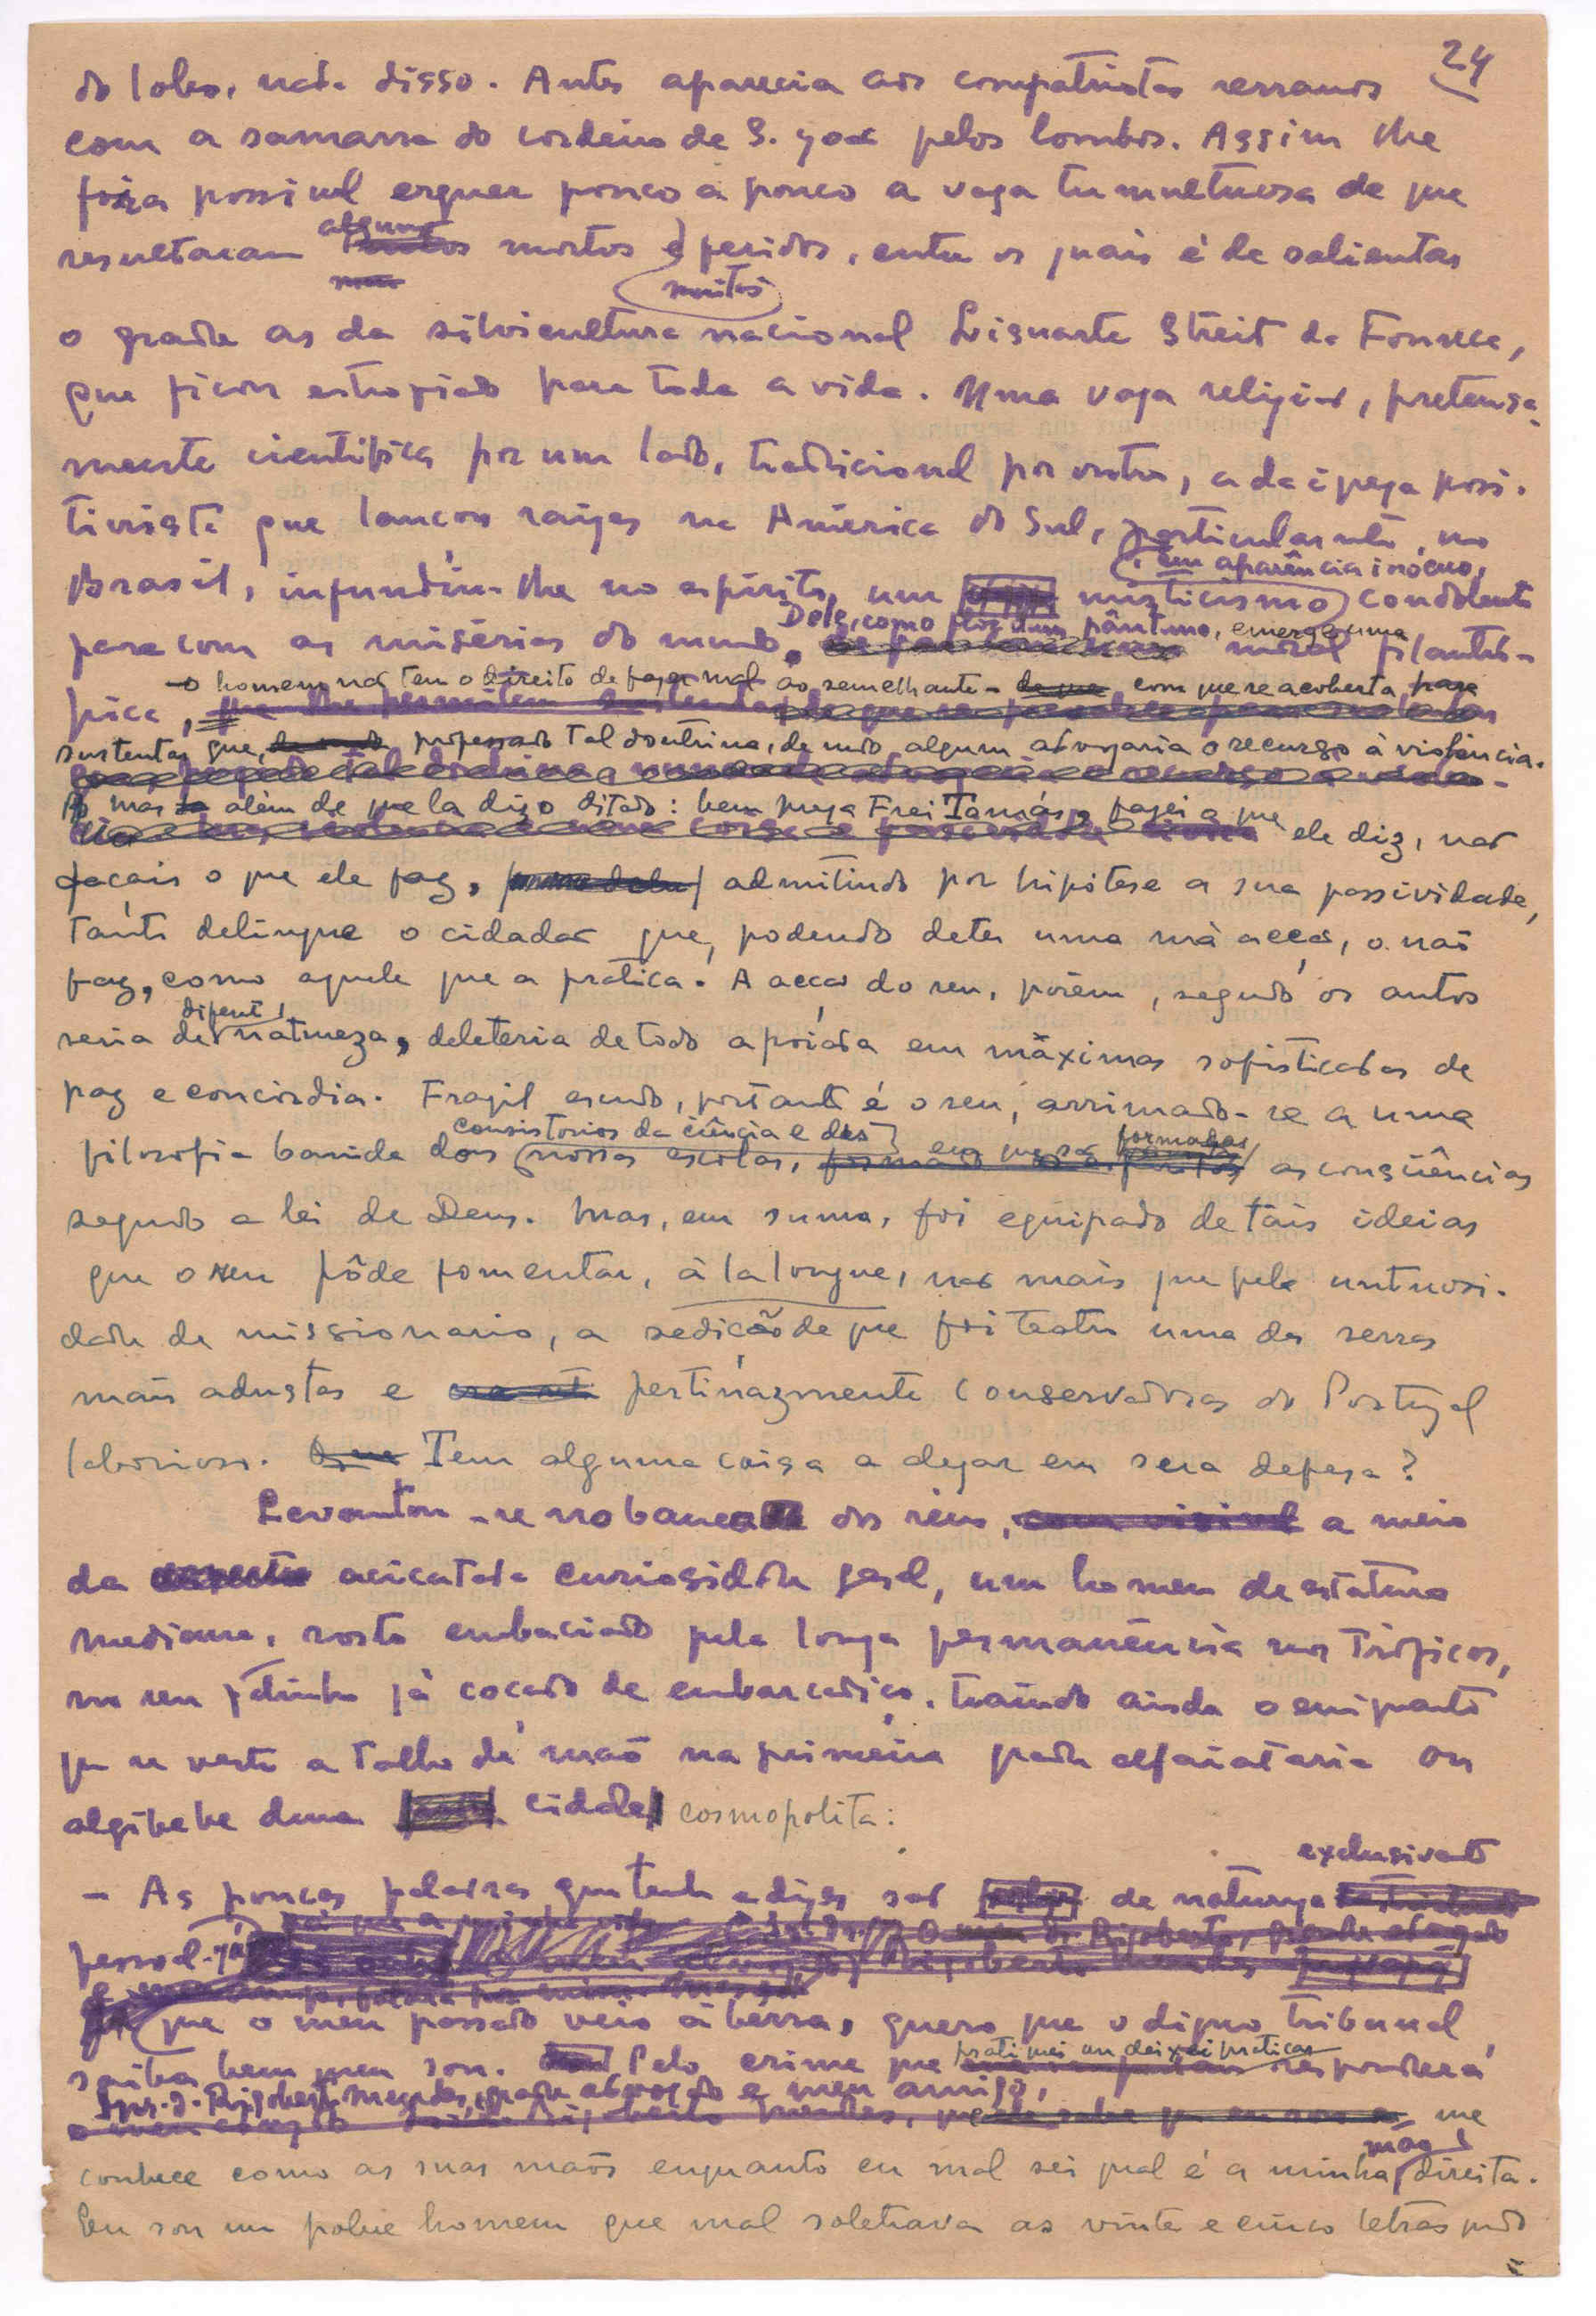 24
do lobo, nada disso. Antes aparecia aos compatriotas serranos
com a samarra do cordeiro de S. João pelos lombos. Assim lhe
fôra possivel erguer pouco a pouco a vaga tumultuosa de que
resultaram alguns mortos e feridos, entre os quais é de salientar
muitos
o grande ás da silvicultura nacional Lisuarte Streit da Fonseca,
que ficou estropiado para toda a vida. Uma vaga religião, pretensa-
mente cientifica por um lado, tradicional por outro, a da igreja posi-
tivista que lançou raizes na América do Sul, particularmte no
, em aparência inócuo,
Brasil, infundiu-lhe no espirito um misticismo condolente
Dele, como flor dum pântano, emerge uma
para com as misérias do mundo. moral filantró-
-o homem não tem o direito de fazer mal ao semelhante- com que se acoberta para
pica,
sustentar que, professando tal doutrina, de modo algum advogaria o recurso à violência.
mas além de que lá diz o ditado: bem prega Frei Tomás, fazei o que
ele diz, não
façais o que ele faz, admitindo por hipótese a sua passividade,
tanto delinque o cidadão que, podendo deter uma má acção, o não
faz, como aquele que a pratica. A acção do reu, porém, segundo os autos
diferente
seria de natureza, deleteria de todo apoiada em máximas sofisticadas de
paz e concórdia. Fragil escudo, portanto é o seu, arrimando-se a uma
consistorios da ciência e das formadas
filosofia banida dos nossas escolas, em que são as consciências
segundo a lei de Deus. Mas, em suma, foi equipado de tais ideias
que o reu pôde fomentar, à la longue, não mais que pela untuosi-
dade de missionario, a sedição de que foi teatro uma das serras
mais adustas e pertinazmente conservadoras do Portugal
laborioso. Tem alguma coisa a alegar em sua defesa?
Levantou-se no banco dos réus, a meio
da acicatada curiosidade geral, um homem de estatura
mediana, rosto embaciado pela longa permanência nos trópicos,
no seu fatinho já coçado de embarcadiço, traindo ainda o emigrante
que se veste a talho de mão na primeira grande alfaiataria ou
algibebe duma cidade cosmopolita:
exclusivamte
- As poucas palavras que tenho a dizer são de natureza
pessoal. Já
que o meu passado veio à berra, quero que o digno tribunal
pratiquei ou deixei praticar
saiba bem quem sou. Pelo crime que responderá
Snr. d. Rigoberto Mendes, grande advogado e meu amigo,
me
mão
conhece como as suas mãos enquanto eu mal sei qual é a minha direita.
Eu sou um pobre homem que mal soletrava as vinte e cinco letras qdo